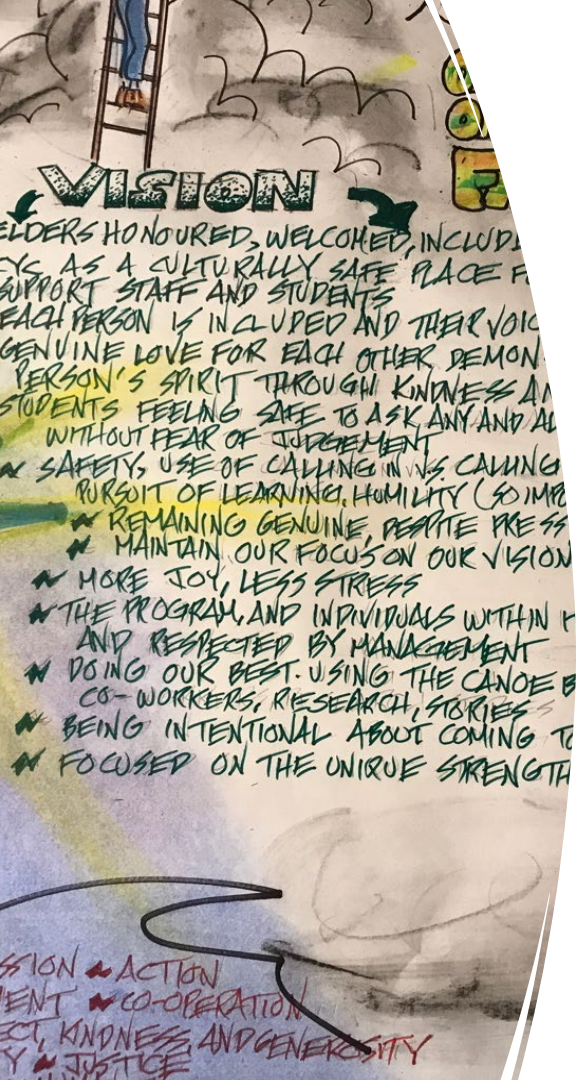 VISION
ELDERS HONOURED, WELCOMED, INCLUDE
CYC AS A CULTURALLY SAFE PLACE F
SUPPORT STAFF AND STUDENTS
EACH PERSON IS INCLUDED AND THEIR VOIC
GENUINE LOVE FOR EACH OTHER DEMON
PERSON'S SPIRIT THROUGH KINDNESS AN
STUDENTS FEELING SAFE TO ASK ANY AND AL
WITHOUT FEAR OF JUDGEMENT
SAFETY, USE OF CALLING IN VS. CALLING
PURSUIT OF LEARNING. HUMILITY (SO IMPO
REMAINING GENUINE, DESPITE PRESS
MAINTAIN OUR FOCUS ON OUR VISION
MORE JOY, LESS STRESS
THE PROGRAM, AND INDIVIDUALS WITHIN I
AND RESPECTED BY MANAGEMENT
DOING OUR BEST. USING THE CANOE B
CO-WORKERS, RESEARCH, STORIES
BEING INTENTIONAL ABOUT COMING TO
FOCUSED ON THE UNIQUE STRENGTH
SSION ACTION
MENT CO-OPERATION
ECT, KINDNESS, AND GENEROSITY
Y JUSTICE